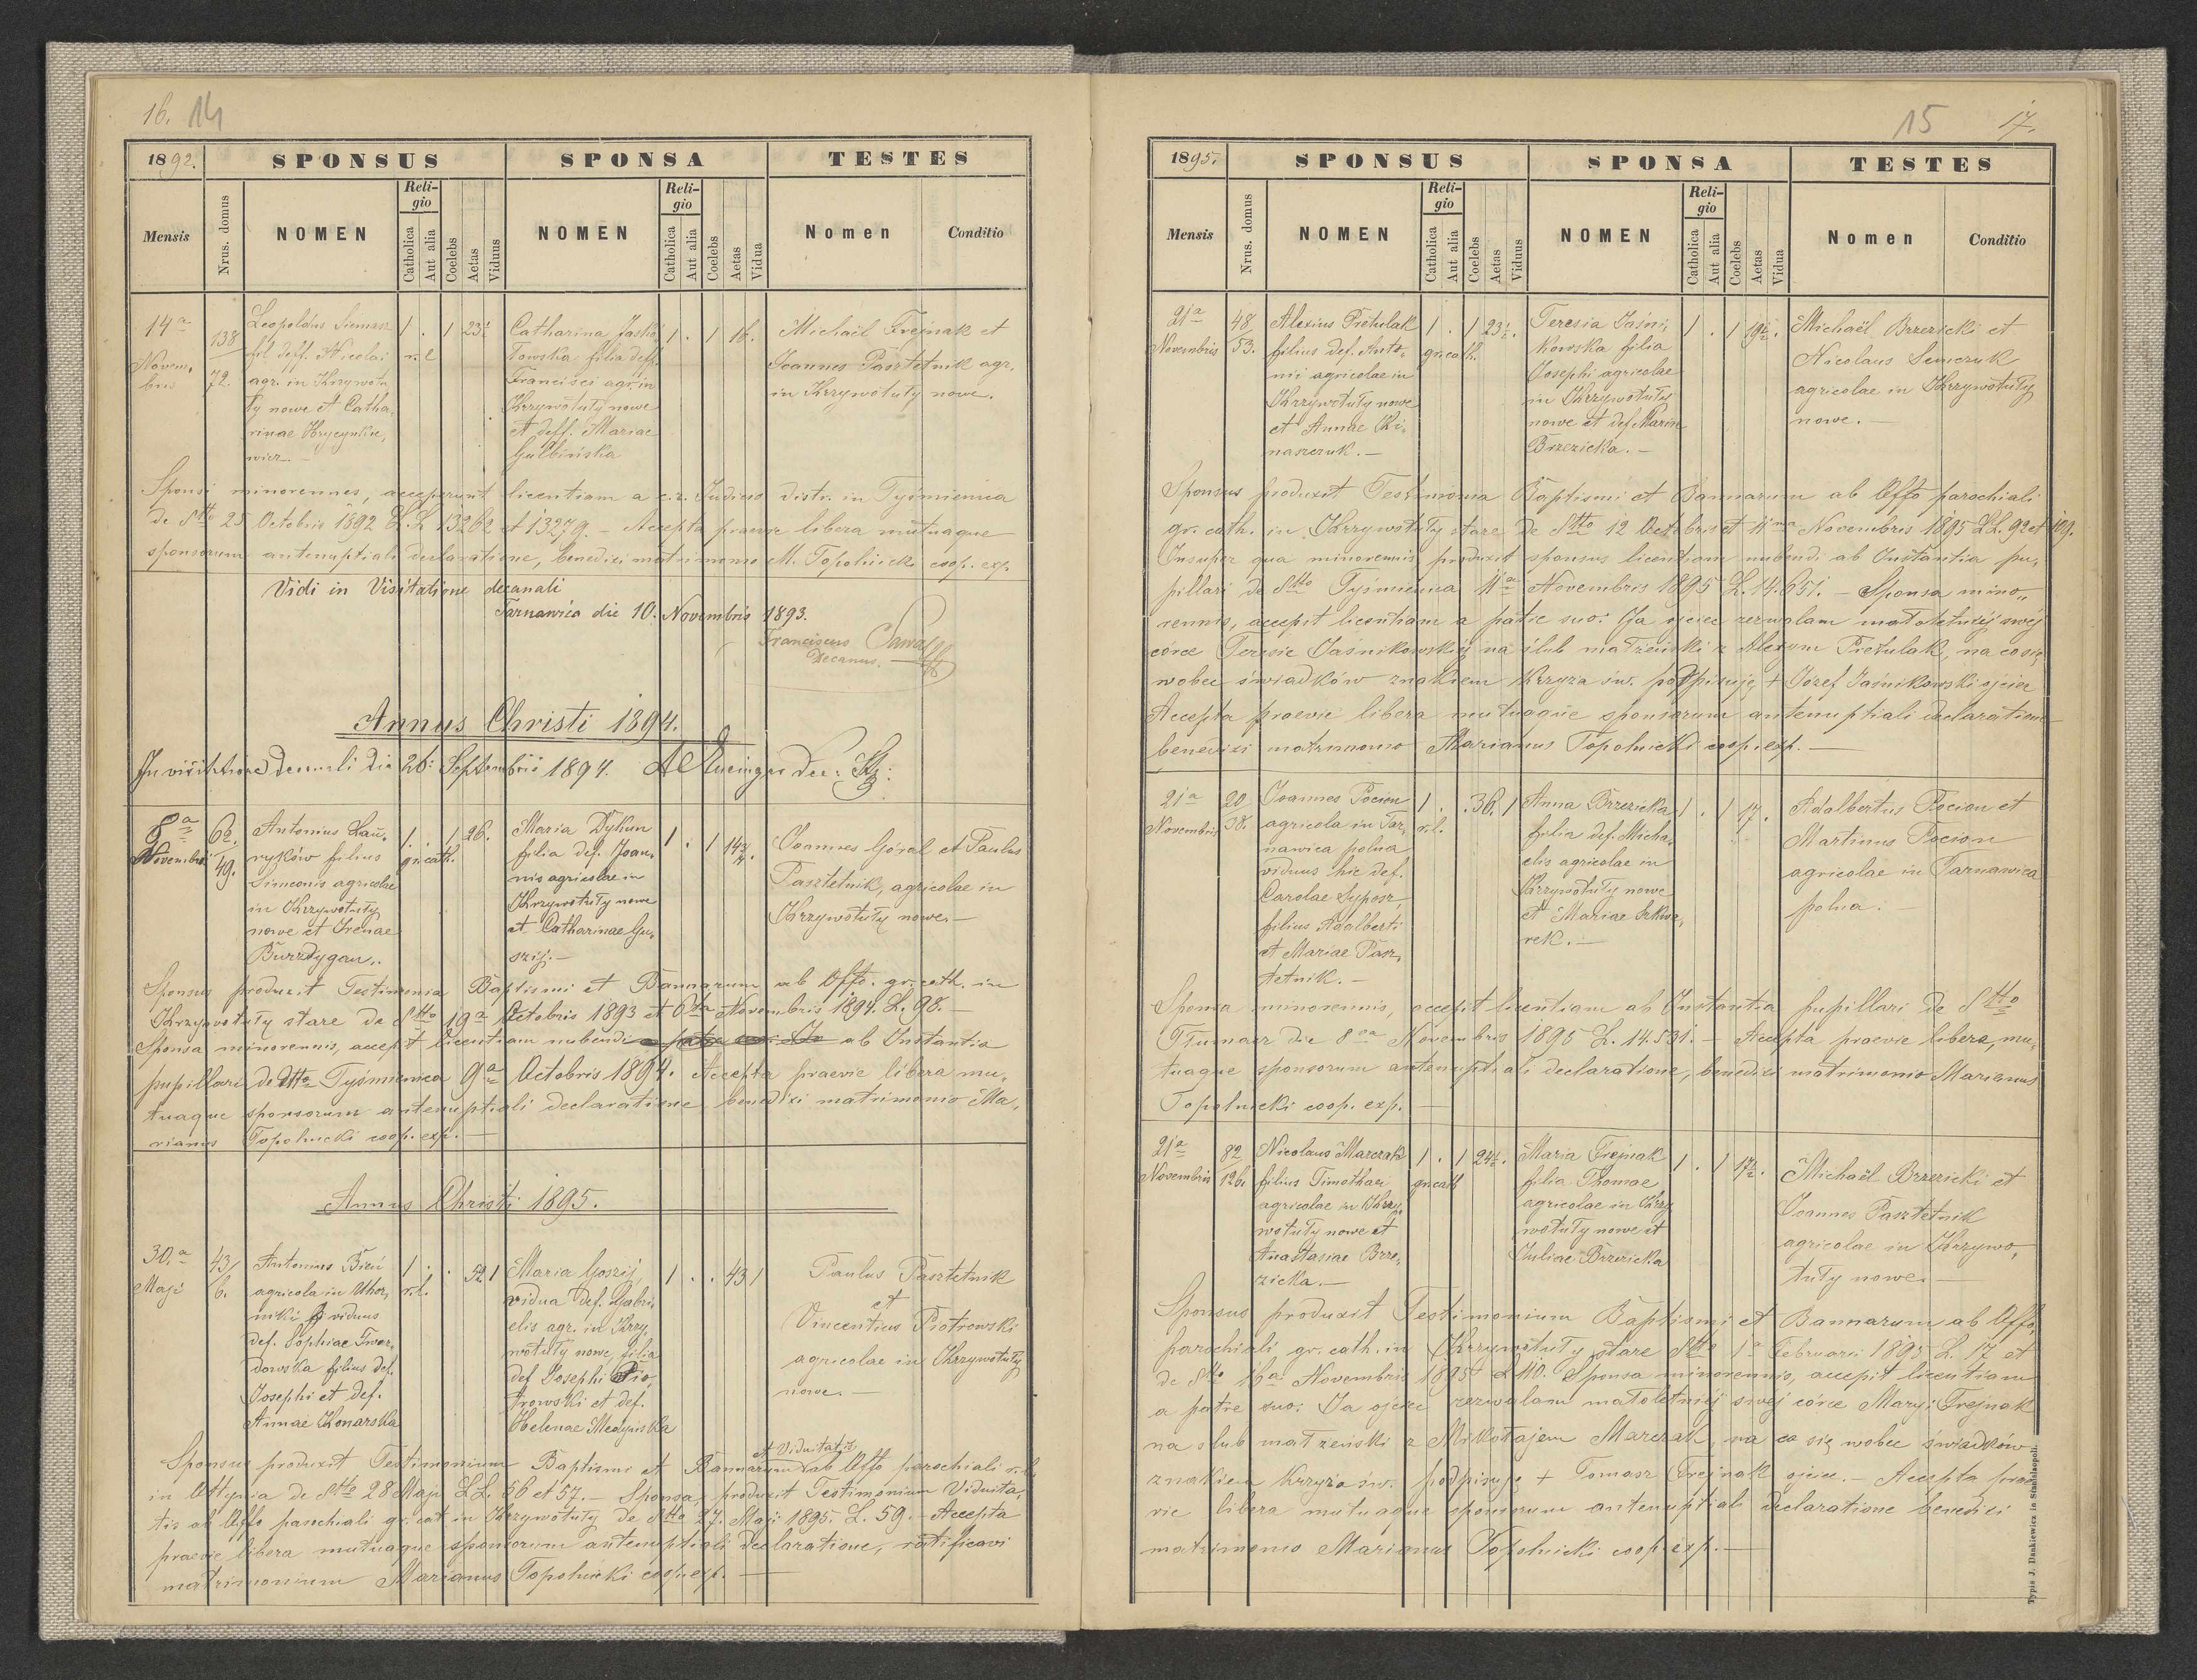 16. 14
1892. SPONSUS SPONSA TESTES
Mensis Nrus. domus NOMEN Religio Catholica Aut alia Coelebs Aetas Viduus NOMEN Religio Catholica Aut alia Coelebs Aetas Vidua Nomen Conditio
14a Novembris
138 72.
Leopoldus Siemasz
fil. deff. Nicolai
agr. in Krzywotu,
ty nowe et Catha,
rinae Hrycynkie,
wicz. –
1 . 1 23½
r. l.
Catharina Jaśko
Francisci agr. in
Krzywotuty nowe
et deff. Mariae
Gulbińska
1 . 1 18.
Michael Trejnak et
Joannes Pasztetnik agr.
in Krzywotuty nowe.
Sponsi minorennes, acceperunt licentiam a c. r. Judicio distr. in Tyśmienica
de dtto 25 Octobris 1892 L. L. 13262 et 13279. – Accepta praevie libera mutuaque
sponsorum antenuptiali declaratione, benedixi matrimonio M. Topolnicki coop. exp.
Vidi in Visitatione decanali
Tarnawica die 10. Novembris 1893.
Franciscus
Decanus.
Annus Christi 1894.
In visitatione decanali die 26. Septembris 1894.
8a Novembris
62. 49.
Antonius Ław,
ryków filius
Simeonis agricolae
in Krzywotuty
nowe et Irenae
Burdygan,.
1 . 1 26.
gr. cath.
Maria Dykun
filia def. Joan,
nis agricolae in
Krzywotuty nowe
et Catharinae Gu,
szij. –
1 . 1 14¾.
Joannes Góral et Paulus
Pasztetnik, agricolae in
Krzywotuty nowe. –
Sponsus produxit Testimonia Baptismi et Bannarum ab Offo. gr. cath. in
Krzywotuty stare de dtto 19a Octobris 1893 et 6ta Novembris 1894. L. 98. –
Sponsa minorennis, accepit licentiam nubendi ab Instantia
pupillari de dtto Tyśmienica 9a Octobris 1894. Accepta praevie libera mu,
tuaque sponsorum antenuptiali declaratione, benedixi matrimonio Ma,
rianus Topolnicki coop. exp. –
Annus Christi 1895.
30.a Maji
43/6.
Antonius Bień
agricola in Uhor,
niki viduus
def. Sophiae Twar,
dowska filius def.
Josephi et def.
Annae Konarska
1 . . 52 1
r. l.
Maria Goszij,
vidua def. Gabri,
elis agr. in Krzy,
wotuty nowe, filia
def Josephi Pio,
trowski et def.
Helenae Medyńska
1 . . 43 1
Paulus Pasztetnik
et
Vincentius Piotrowski
agricolae in Krzywotuty
nowe. –
et Viduitatis
Sponsus produxit Testimonium Baptismi et Bannarum ab Offo parochiali r. l.
in Ottynia de dtto 28 Maji L L. 56 et 57. – Sponsa, produxit Testimonium Viduita,
tis ab Offo parochiali gr. cat in Krzywotuty de dtto 27. Maji 1895. L. 59. – Accepta
praevie libera mutuaque sponsorum antenuptiali declaratione, ratificavi
matrimonium Marianus Topolnicki coop. exp. –
15 17.
1895. SPONSUS SPONSA TESTES
Mensis Nrus. domus NOMEN Religio Catholica Aut alia Coelebs Aetas Viduus NOMEN Religio Catholica Aut alia Coelebs Aetas Vidua Nomen Conditio
21a Novembris
48/53.
Alexius Pietulak
filius def. Anto,
nii agricolae in
Krzywotuty nowe
et Annae Ki,
naszczuk. –
1 . 1 23½.
gr. cath.
Teresia Jaśni,
kowska filia
Josephi agricolae
in Krzywotuty
nowe et def. Mariae
Brzezicka. –
1 . 1 19½.
Michaël Brzezicki et
Nicolaus Semczuk
agricolae in Krzywotuty
nowe. –
Sponsus produxit Testimonia Baptismi et Bannarum ab Offo parochiali
gr. cath. in Krzywotuty stare de dtto 12 Octobris et 11ma Novembris 1895 L L. 92 et 109.
Insuper qua minorennis, produxit sponsus licentiam nubendi ab Instantia pu,
pillari de dtto Tyśmienica 11a Novembris 1895 L. 14.651. – Sponsa mino,,
rennis, accepit licentiam a patre suo: Ja ojciec zezwalam małoletniéj swéj
córce Teresie Jaśnikowskiéj na ślub małżeński z Alexym Pietulak, na co się
wobec świadków znakiem Krzyża św. podpisuję + Józef Jaśnikowski ojciec
Accepta praevie libera mutuaque sponsorum antenuptiali declaratione
benedixi matrimonio Marianus Topolnicki coop. exp. –
21a Novembris
20 38.
Joannes Pocion
agricola in Tar,
nawica polna
viduus hic def.
Carolae Syposz,
filius Adalberti
et Mariae Pasz,
tetnik. –
1 . . 36. 1
r. l.
Anna Brzezicka
filia def. Micha,
elis agricolae in
Krzywotuty nowe
et Mariae Szkwa,
rek. –
1 . 1 17.
Adalbertus Pocion et
Martinus Pocion
agricolae in Tarnawica
polna. –
Sponsa minorennis, accepit licentiam ab Instantia pupillari de dtto
Tłumacz die 8va Novembris 1895 L. 14.531. – Accepta praevie libera, mu,
tuaque sponsorum antenuptiali declaratione, benedixi matrimonio Marianus
Topolnicki coop. exp. –
21a Novembris
82 126.
Nicolaus Marczak
filius Timothaei
agricolae in Krzy,
wotuty nowe et
Anastasiae Brze,
zicka. –
1 . 1 24½.
gr. cath
Maria Trejnak
filia Thomae
agricolae in Krzy
wotuty nowe et
Juliae Brzezicka
1 . 1 17½.
Michaël Brzezicki et
Joannes Pasztetnik
agricolae in Krzywo,
tuty nowe. –
Sponsus produxit Testimonium Baptismi et Bannarum ab Offo,
parochiali gr. cath. in Krzywotuty stare dtto 1a Februarii 1895 L. 17 et
de dtto 16a Novembris 1895 L 110. Sponsa minorennis, accepit licentiam
a patre suo: Ja ojciec zezwalam małoletniéj swéj córce Maryi Trejnak
na ślub małżeński z Mikołajem Marczak, na co się wobec świadków
znakiem Krzyża św. podpisuję + Tomasz Trejnak ojciec. – Accepta prae
vie libera mutuaque sponsorum antenuptiali declaratione benedixi
matrimonio Marianus Topolnicki coop. exp. –
Typis J. Dankiewicz in Stanislaopoli.